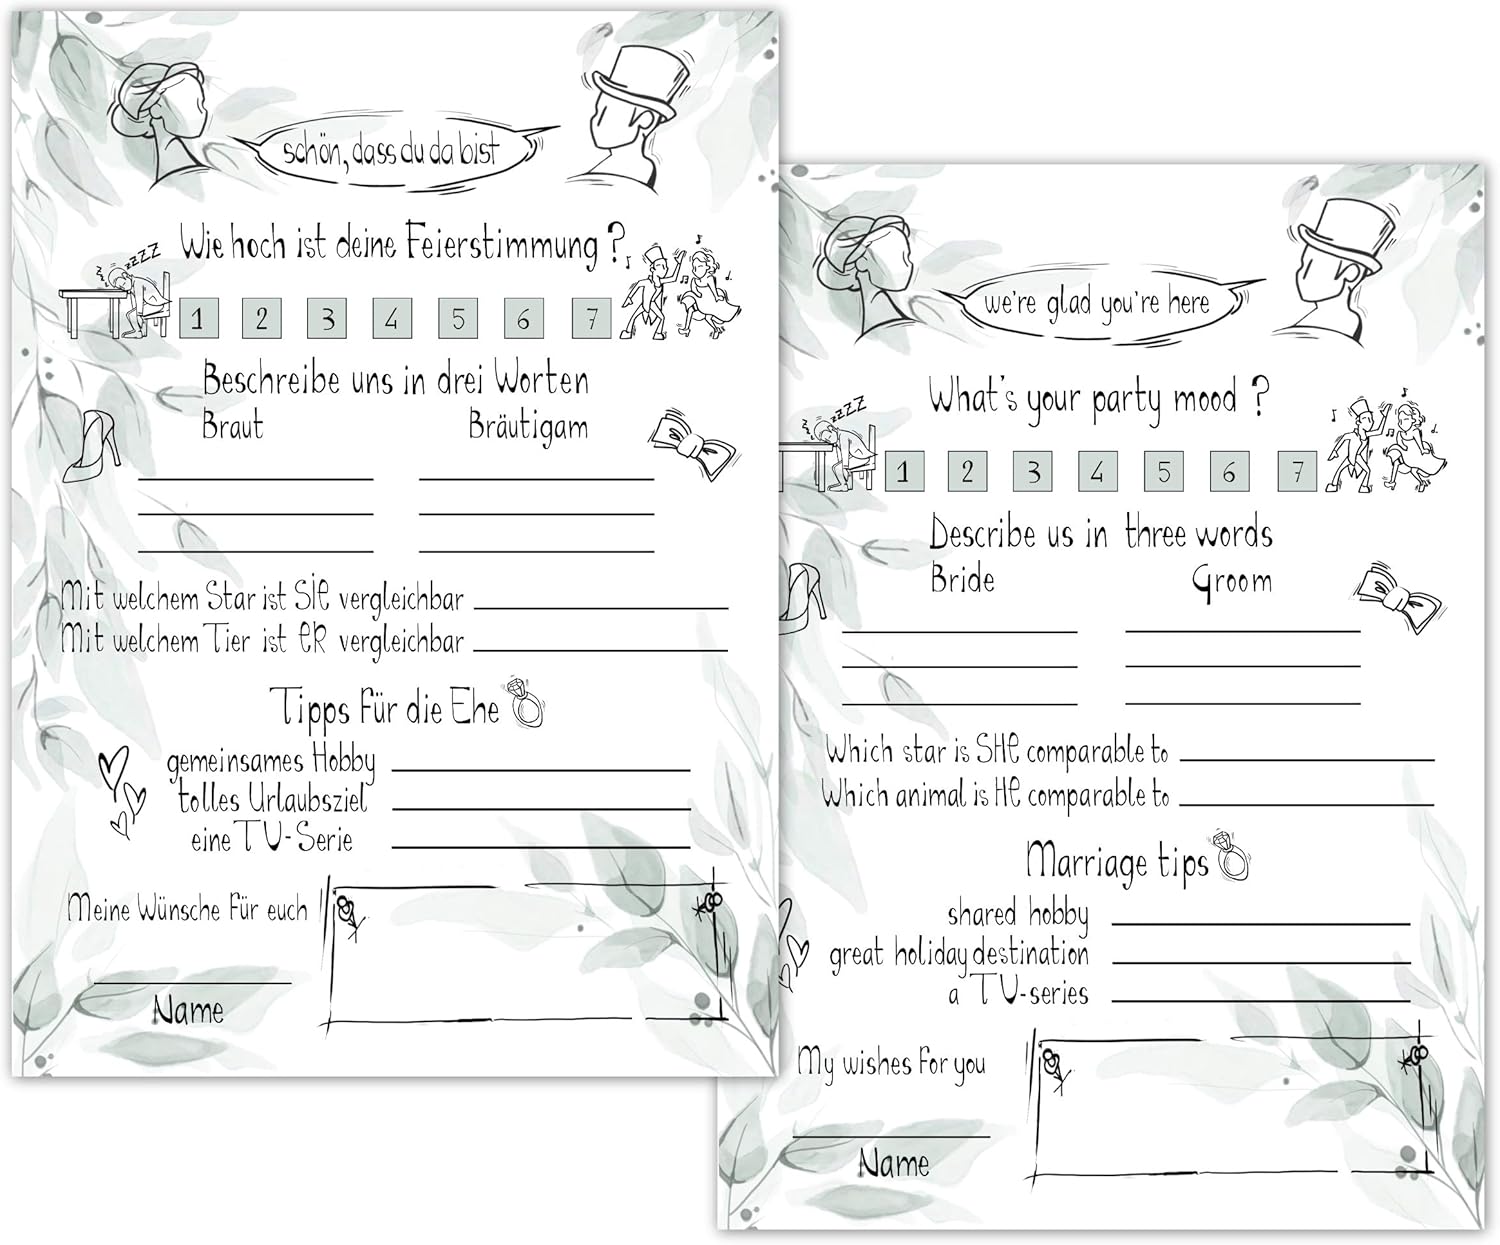 schön, dass du da bist
Wie hoch ist deine Feierstimmung ?
zzzz
1 2 3 4 5 6 7
Beschreibe uns in drei Worten
Braut Bräutigam
Mit welchem Star ist SIE vergleichbar
Mit welchem Tier ist ER vergleichbar
Tipps für die Ehe
gemeinsames Hobby
tolles Urlaubsziel
eine TV-Serie
Meine Wünsche für euch
Name
we're glad you're here
What's your party mood ?
zzzz
1 2 3 4 5 6 7
Describe us in three words
Bride Groom
Which star is SHE comparable to
Which animal is HE comparable to
Marriage tips
shared hobby
great holiday destination
a TV-series
My wishes for you
Name